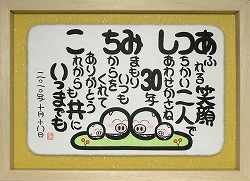 あふれる笑顔
つちかい二人で
しあわせかさね
30年
みまもりいつも
ちからをくれて
ありがとう
これからも共に
いつまでも
二〇一〇年十月十八日